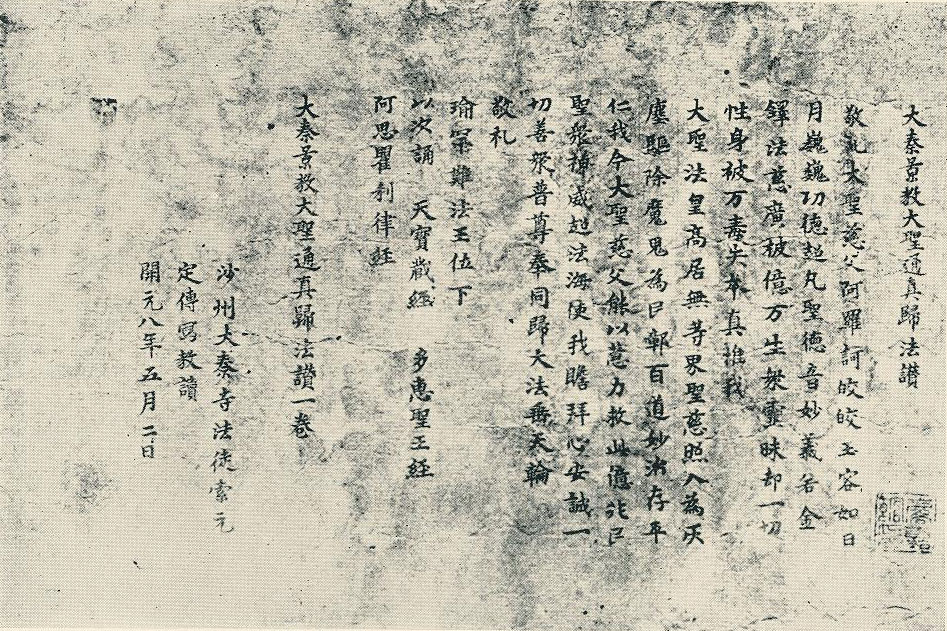 大秦景教大聖通真歸法讚
敬礼大聖慈父阿羅訶皎皎玉容如日
月巍巍功德超凡聖德音妙義若金
鐸法慈廣被億万生衆靈昧却一切
性身被万毒失本真惟我
大聖法皇高居無等界聖慈照入為灰
塵驅除魔鬼為民鄣百道妙治存平
仁我今大聖慈父能以慈力救此億兆民
聖衆神威超法海使我瞻拜心安誠一
切善衆普尊奉同歸大法垂天輪
敬礼
瑜罕難法王位下
以次誦 天寶藏經 多惠聖王経
阿思瞿利律経
大秦景教大聖通真歸法讚一卷
沙州大秦寺法徒索元
定傳寫教讀
開元八年五月二日